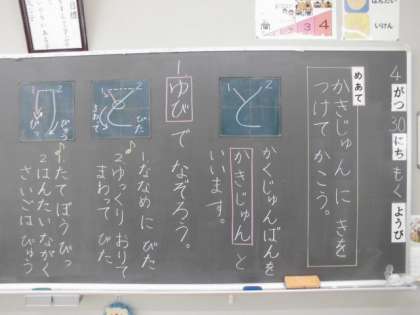 4がつ30にちもくようび
めあて
かきじゅんに きを
つけて かこう。
と
1
2
かくじゅんばんを
かきじゅん と
いいます。
1ゆびで なぞろう。
と
1
2
ぴた
まわって
1ななめに ぴた
2ゆっくり おりて
まわって ぴた
1
2
1たてぼう ぴっ
2はんたい ながく
さいごは ぴゅう